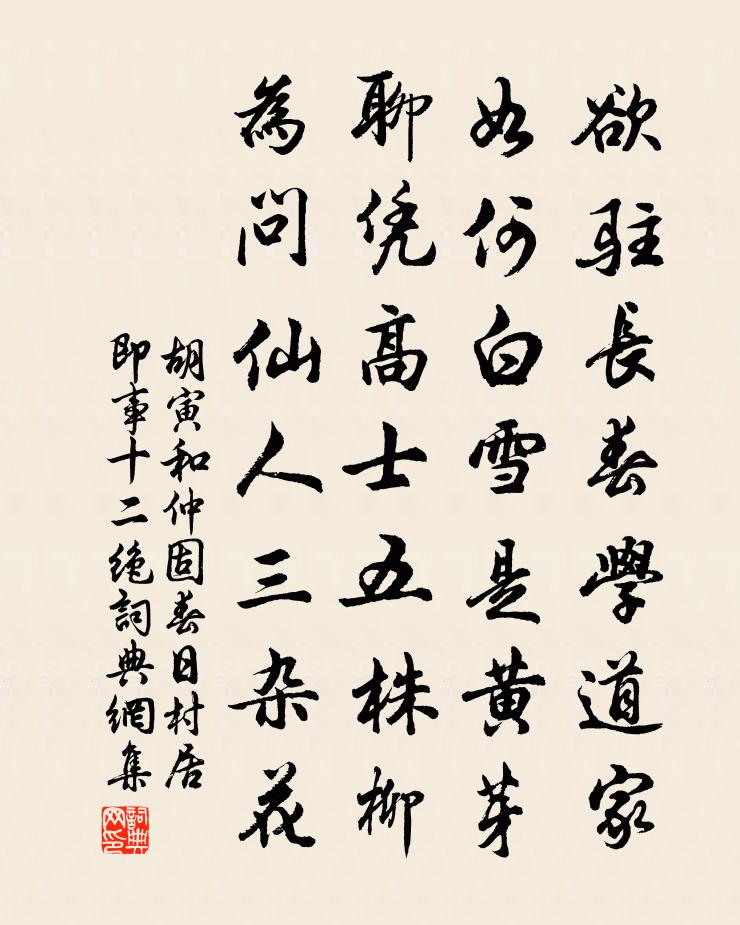 欲駐長春學道家
如何白雪是黃芽
聊凭高士五株柳
為問仙人三朵花
胡寅和仲固春日村居
即事十二絶詞典網集
詞典网印